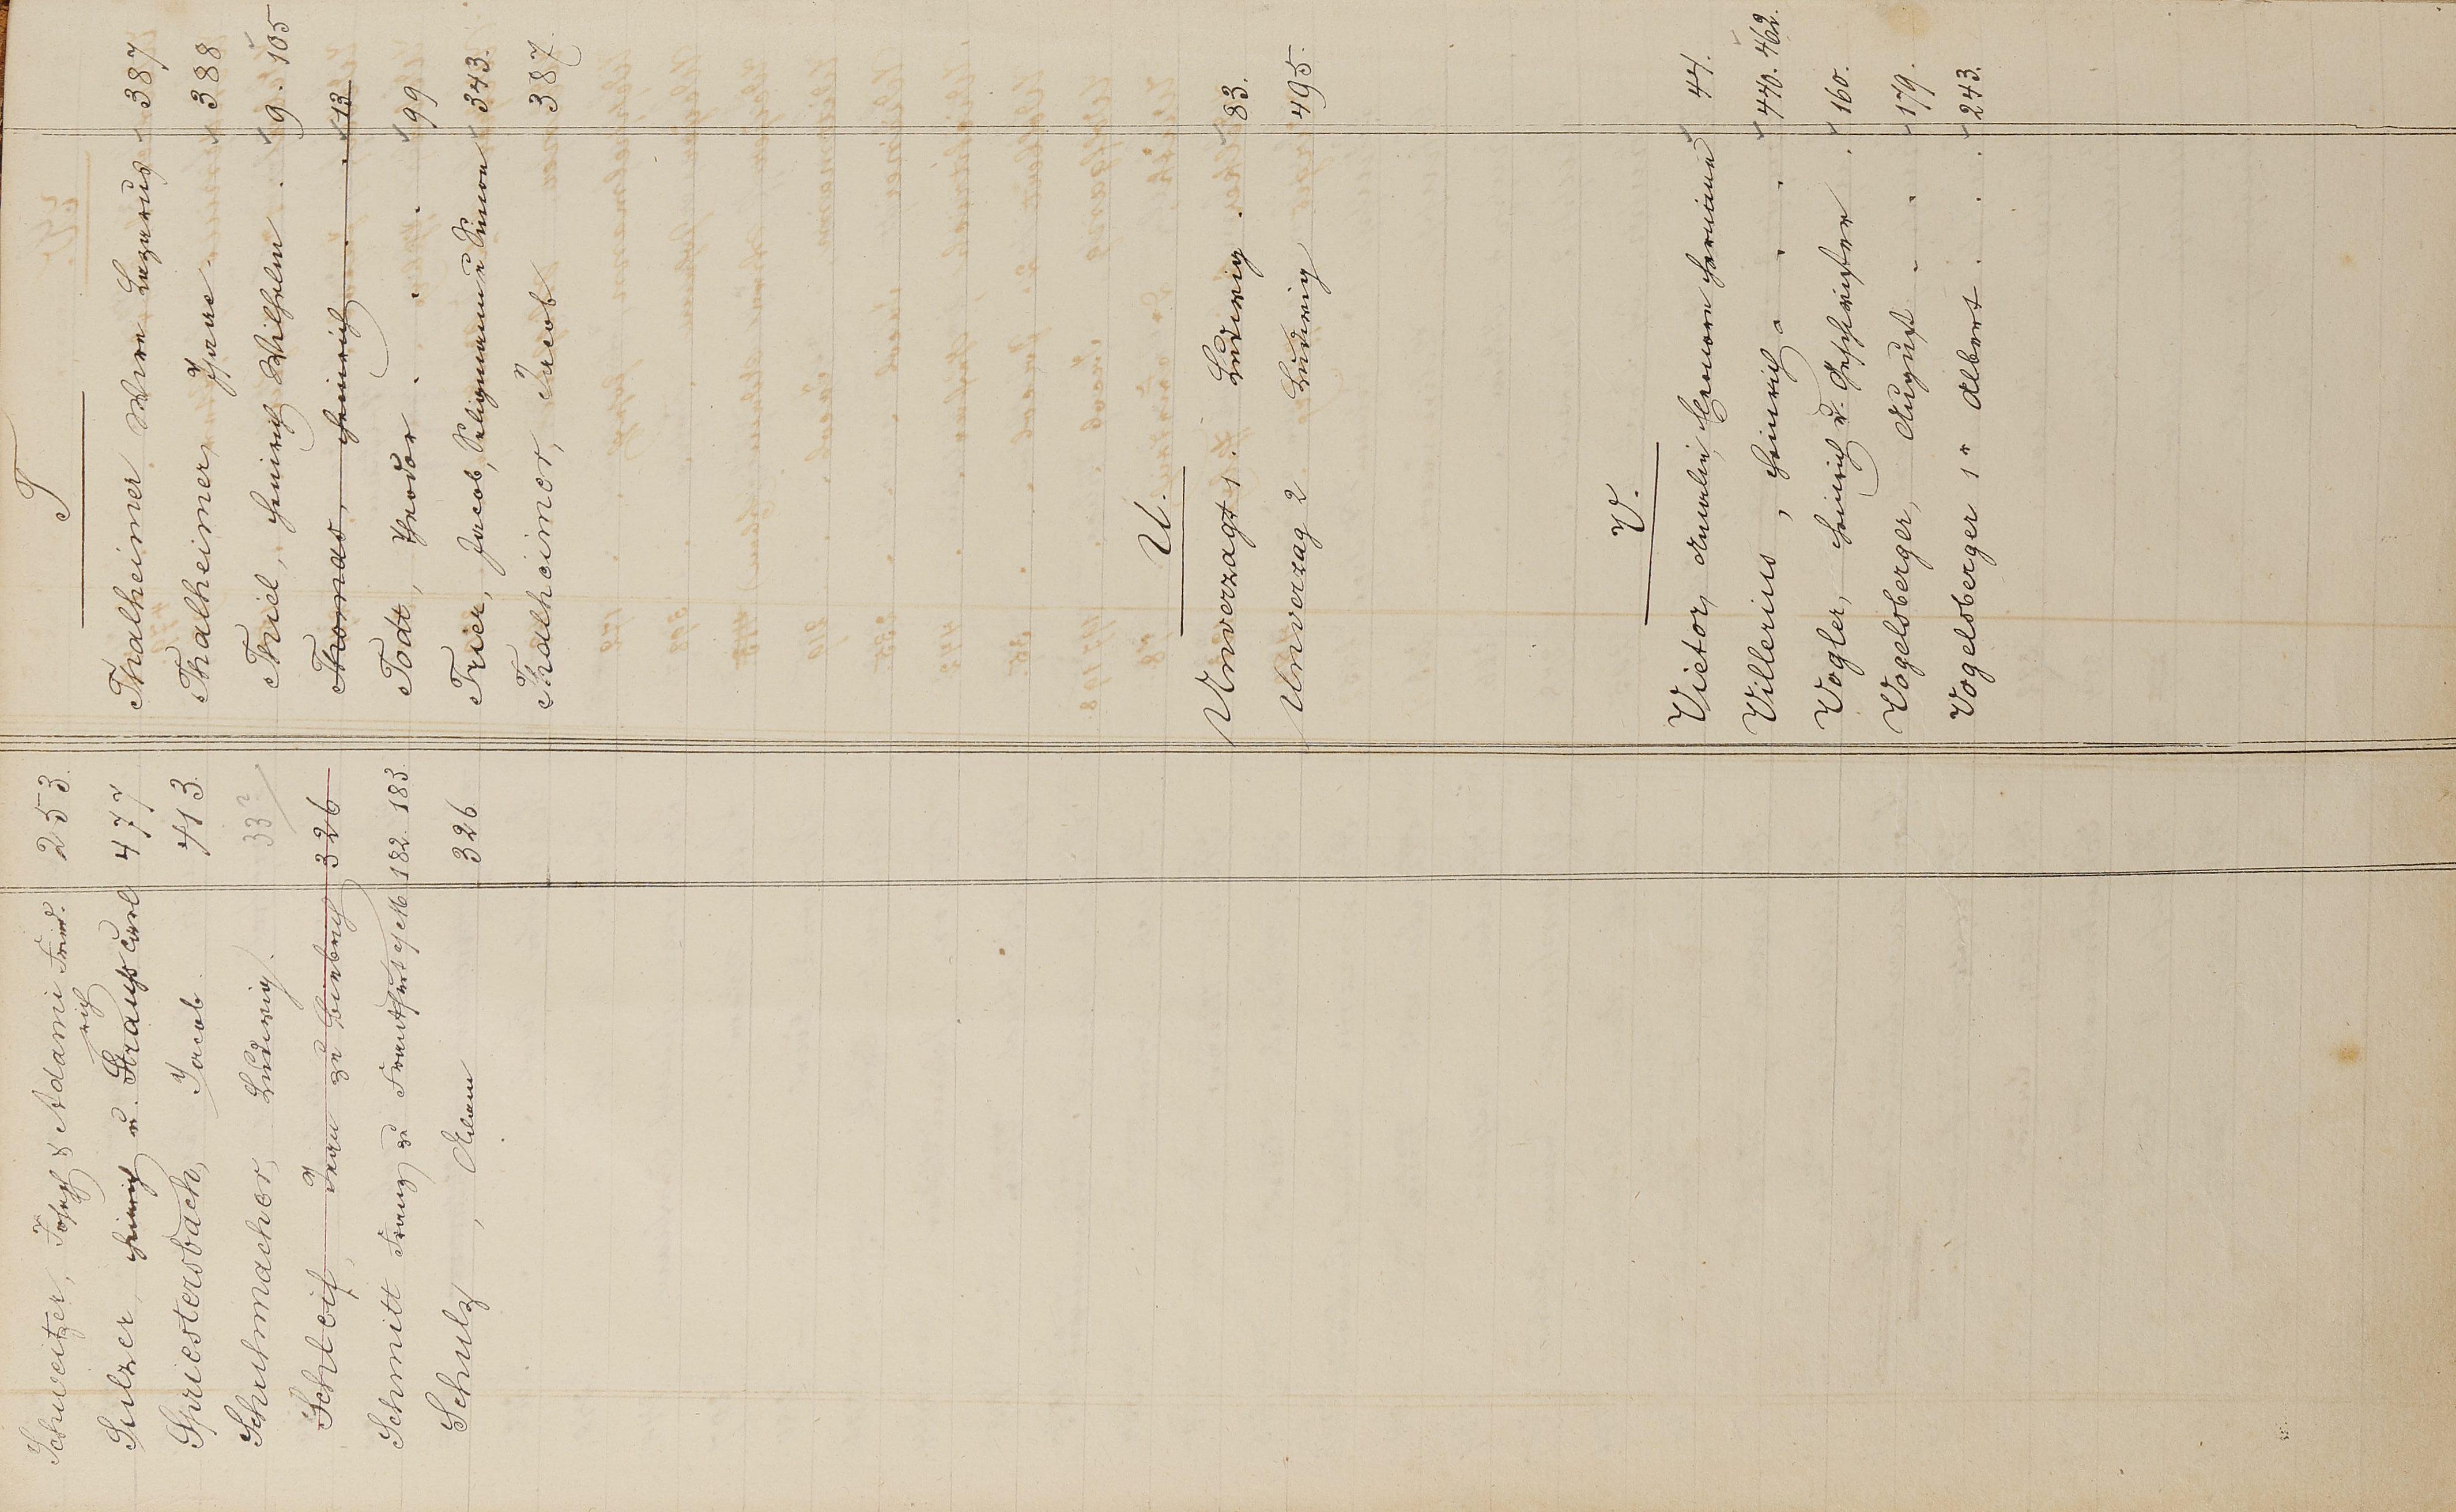 Schweitzer, Joseph & Adami Fried.
rich 253.
Sulzer, Heinrich u. Strauß Carl 477
Spriestersbach, Jacob 413.
Schuhmacher, Ludwig. 332
Schleif, Frau zu Biebrich 326
Schmitt Franz zu Frankfurt a/M 182 183.
Schulz, Adam 326
T
Thalheimer Lazarus 387
Thalheimer, Isaac. 388
Thiel, Heinrich Wilhelm . 9. 105
Thomas, Heinrich . . 13
Todt, Theodor . . . 99
Trier, Jacob, Seligmann u Simon 343.
Thalheimer, Jacob 387.
U.
Unverzagt 1. Ludwig . 83.
Unverzag 2 Ludwig 495.
V.
Victor, Amalie, Hermann 44.
Villerius, Heinrich . . . 440. 462.
Vogler, Heinrich u. Geschwister . 160.
Vogelsberger, August . . 179.
Vogelsberger 1r Albert . . . 243.